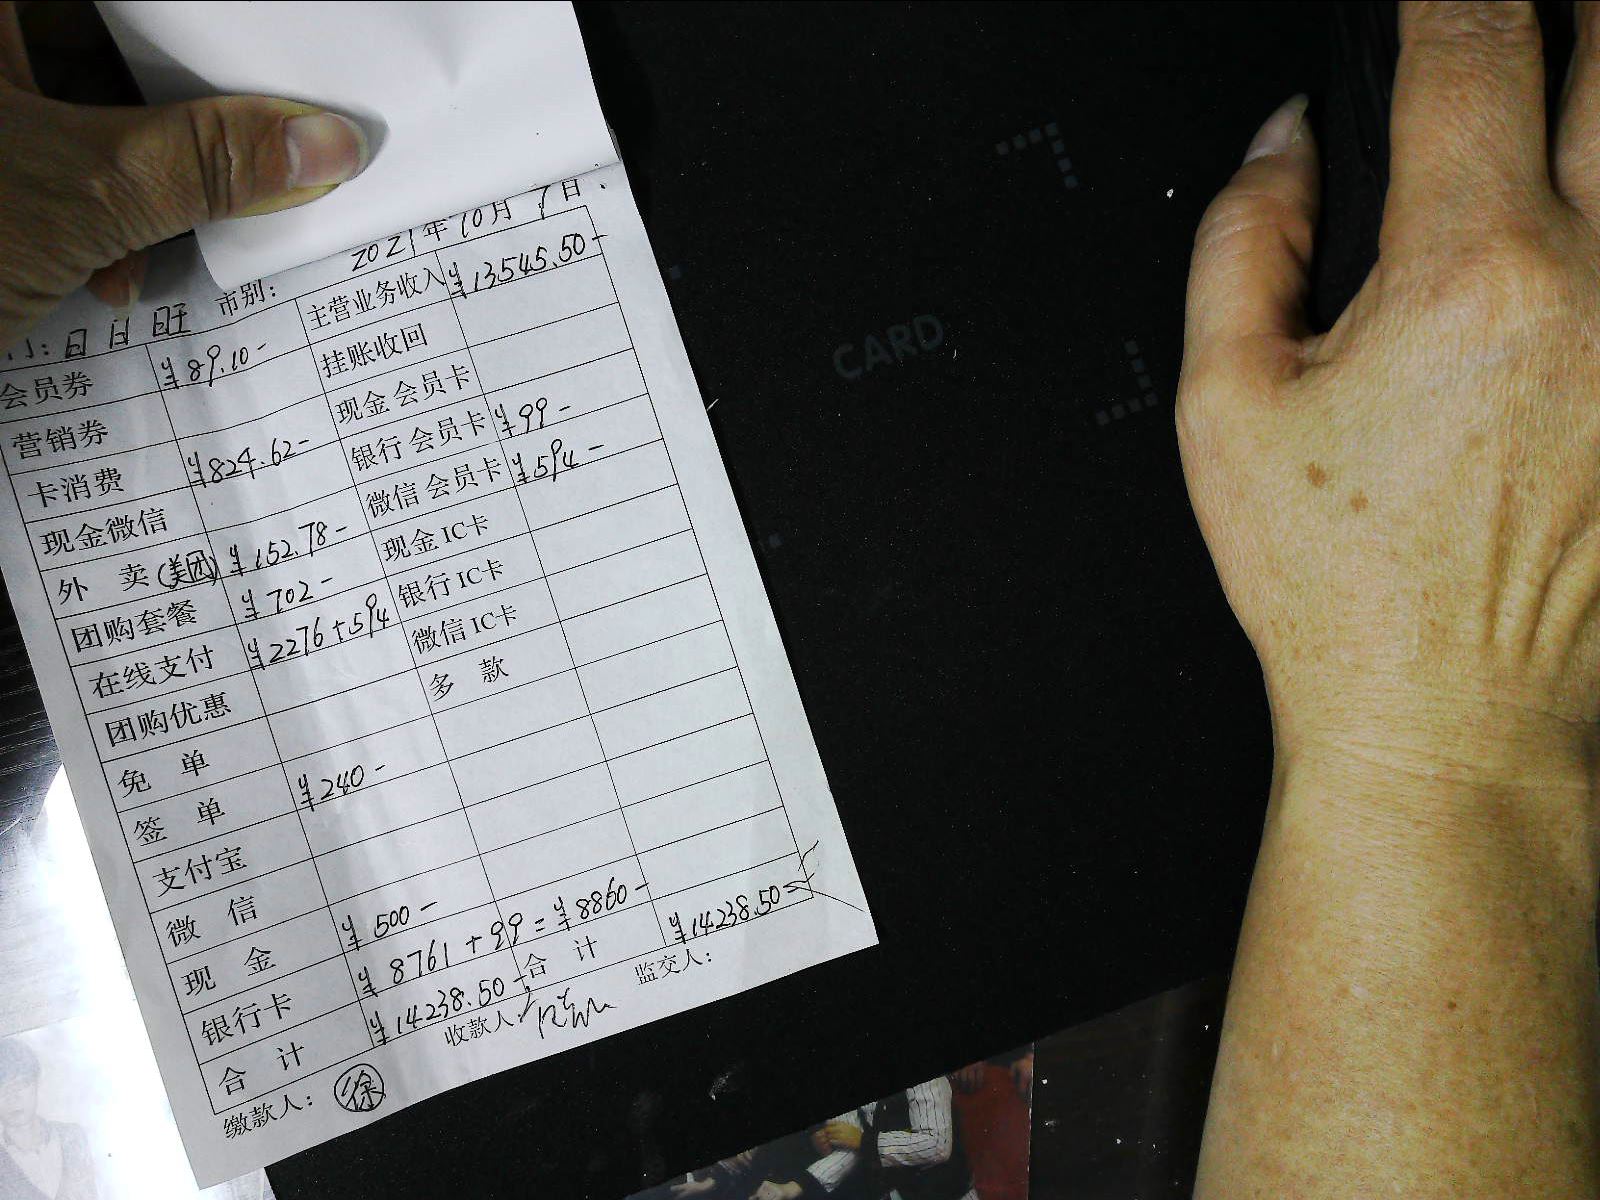 2021年10月7日
门：日日旺 市别：
会员券 ¥89.10- 主营业务收入 ¥13545.50-
营销券 挂账收回
卡消费 ¥824.62- 现金会员卡
现金微信 银行会员卡 ¥99-
外 卖(美团) ¥152.78- 微信会员卡 ¥594-
团购套餐 ¥702- 现金IC卡
在线支付 ¥2276+594 银行IC卡
团购优惠 微信IC卡
免 单 多 款
签 单 ¥240-
支付宝
微 信
现 金 ¥500-
银行卡 ¥8761+99=¥8860-
合 计 ¥14238.50- 合 计 ¥14238.50-
缴款人：徐 收款人： 监交人：
CARD